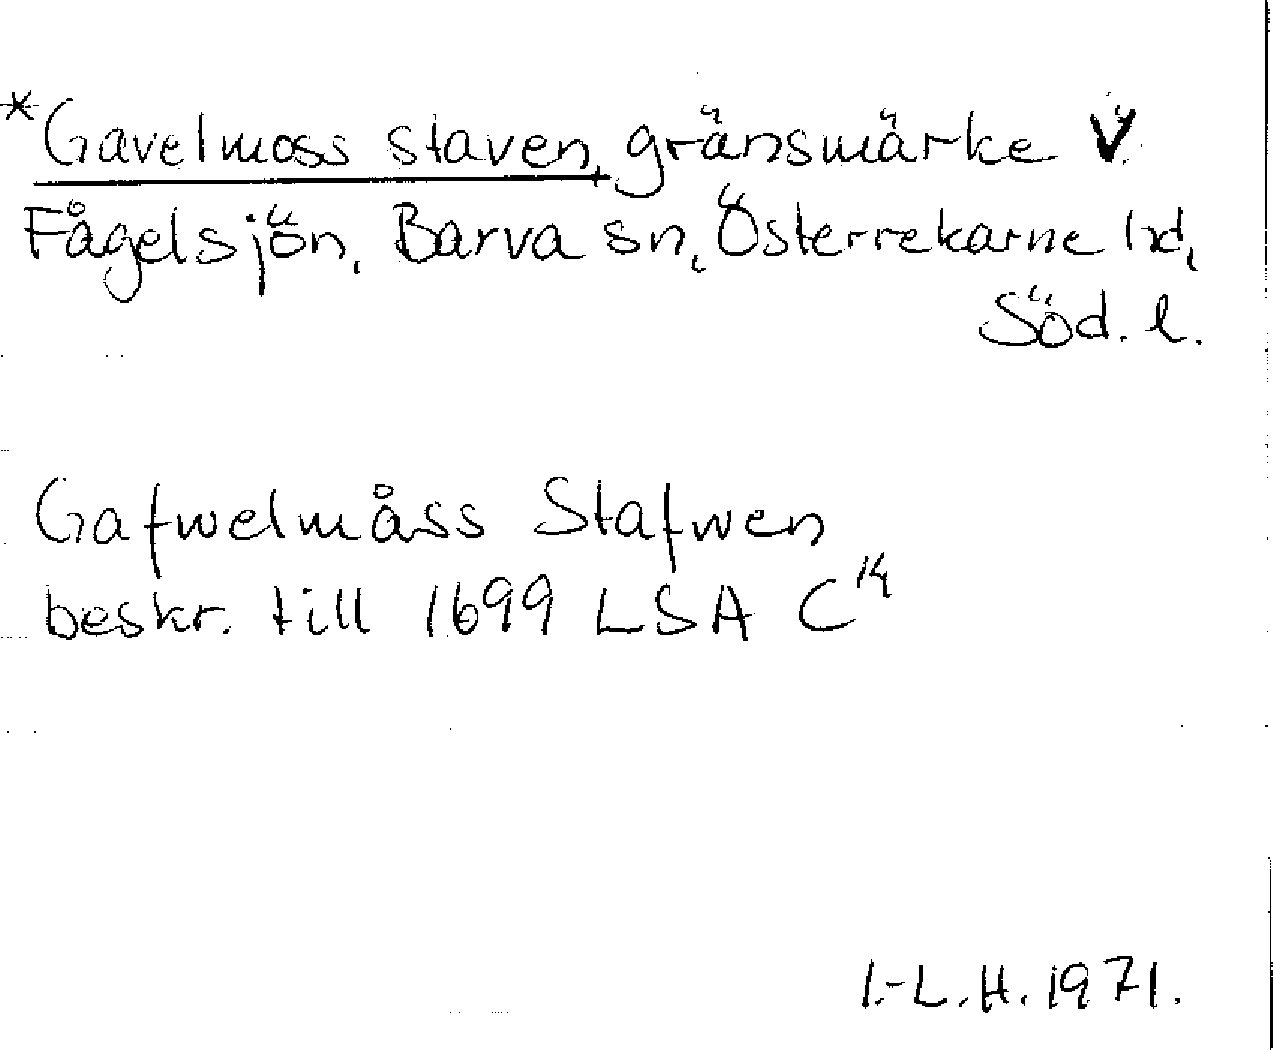 *Gavelmoss staven, gränsmärke V
Fågelsjön, Barva sn, Österrekarne hd,
Söd. l.
Gafwelmåss Stafwen
beskr. till 1699 LSA C¹⁴
I.-L.H. 1971.